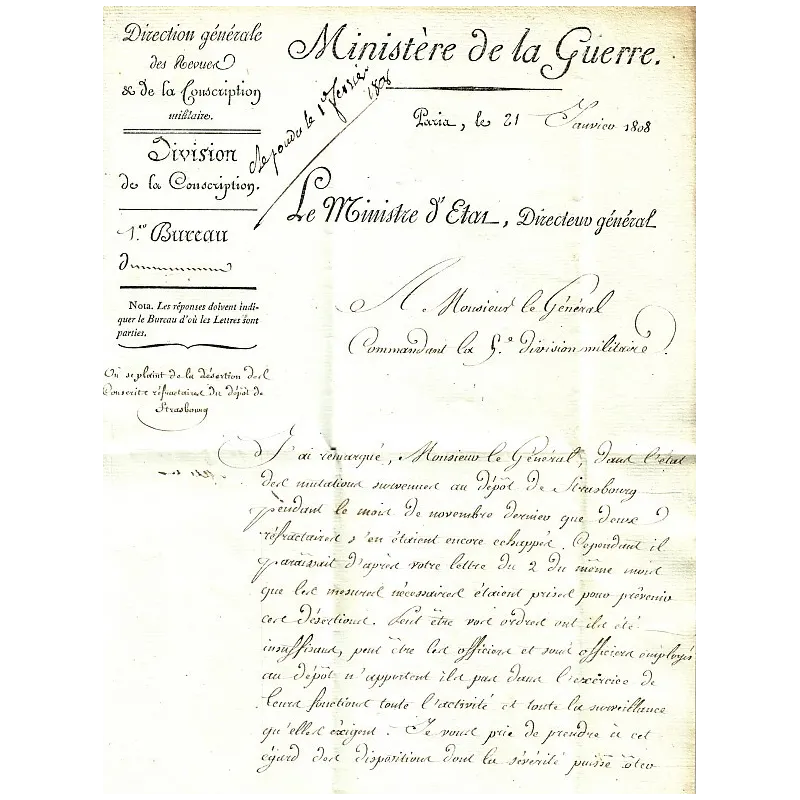 Direction générale
des Revues
& de la Conscription
militaire.
Division
de la Conscription.
1.er Bureau
Nota. Les réponses doivent indi-
quer le Bureau d'où les Lettres sont
parties.
On se plaint de la désertion des
Conscrits réfractaires du dépôt de
Strasbourg
Ministère de la Guerre.
Repondu le 1er fevrier
1808
Paris, le 21 Janvier 1808
Le Ministre d'Etat, Directeur général
A Monsieur le Général
Commandant la 5.e division militaire.
J'ai remarqué, Monsieur le Général, dans l'état
des mutations survenues au dépôt de Strasbourg
pendant le mois de novembre dernier que deux
réfractaires s'en étaient encore echappés. Cependant il
paraissait d'après votre lettre du 2 du même mois
que les mesures nécessaires étaient prises pour prévenir
ces désertions. Peut être vos ordres ont ils été
insuffisans, peut être les officiers et sous officiers employés
au dépôt n'apportent ils pas dans l'exercice de
leurs fonctions toute l'activité et toute la surveillance
qu'elles éxigent. Je vous prie de prendre à cet
égard des dispositions dont la sévérité puisse ôter